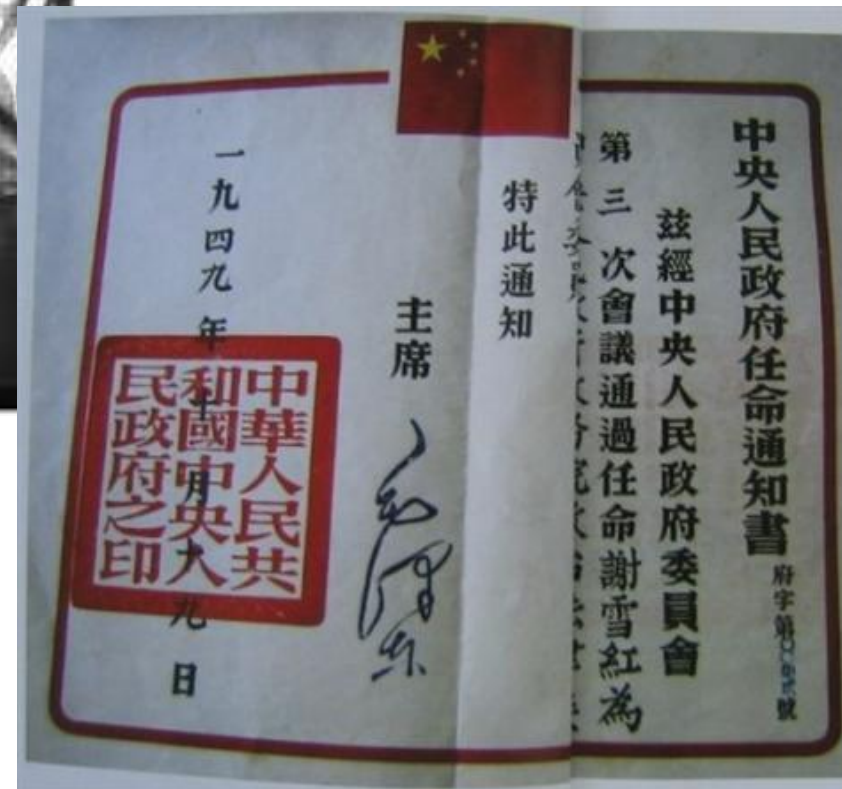 中央人民政府任命通知書
府字第號
茲經中央人民政府委員會
第三次會議通過任命謝雪紅為
特此通知
主席
毛澤東
一九四九年十月十九日
中華人民共
和國中央人
民政府之印